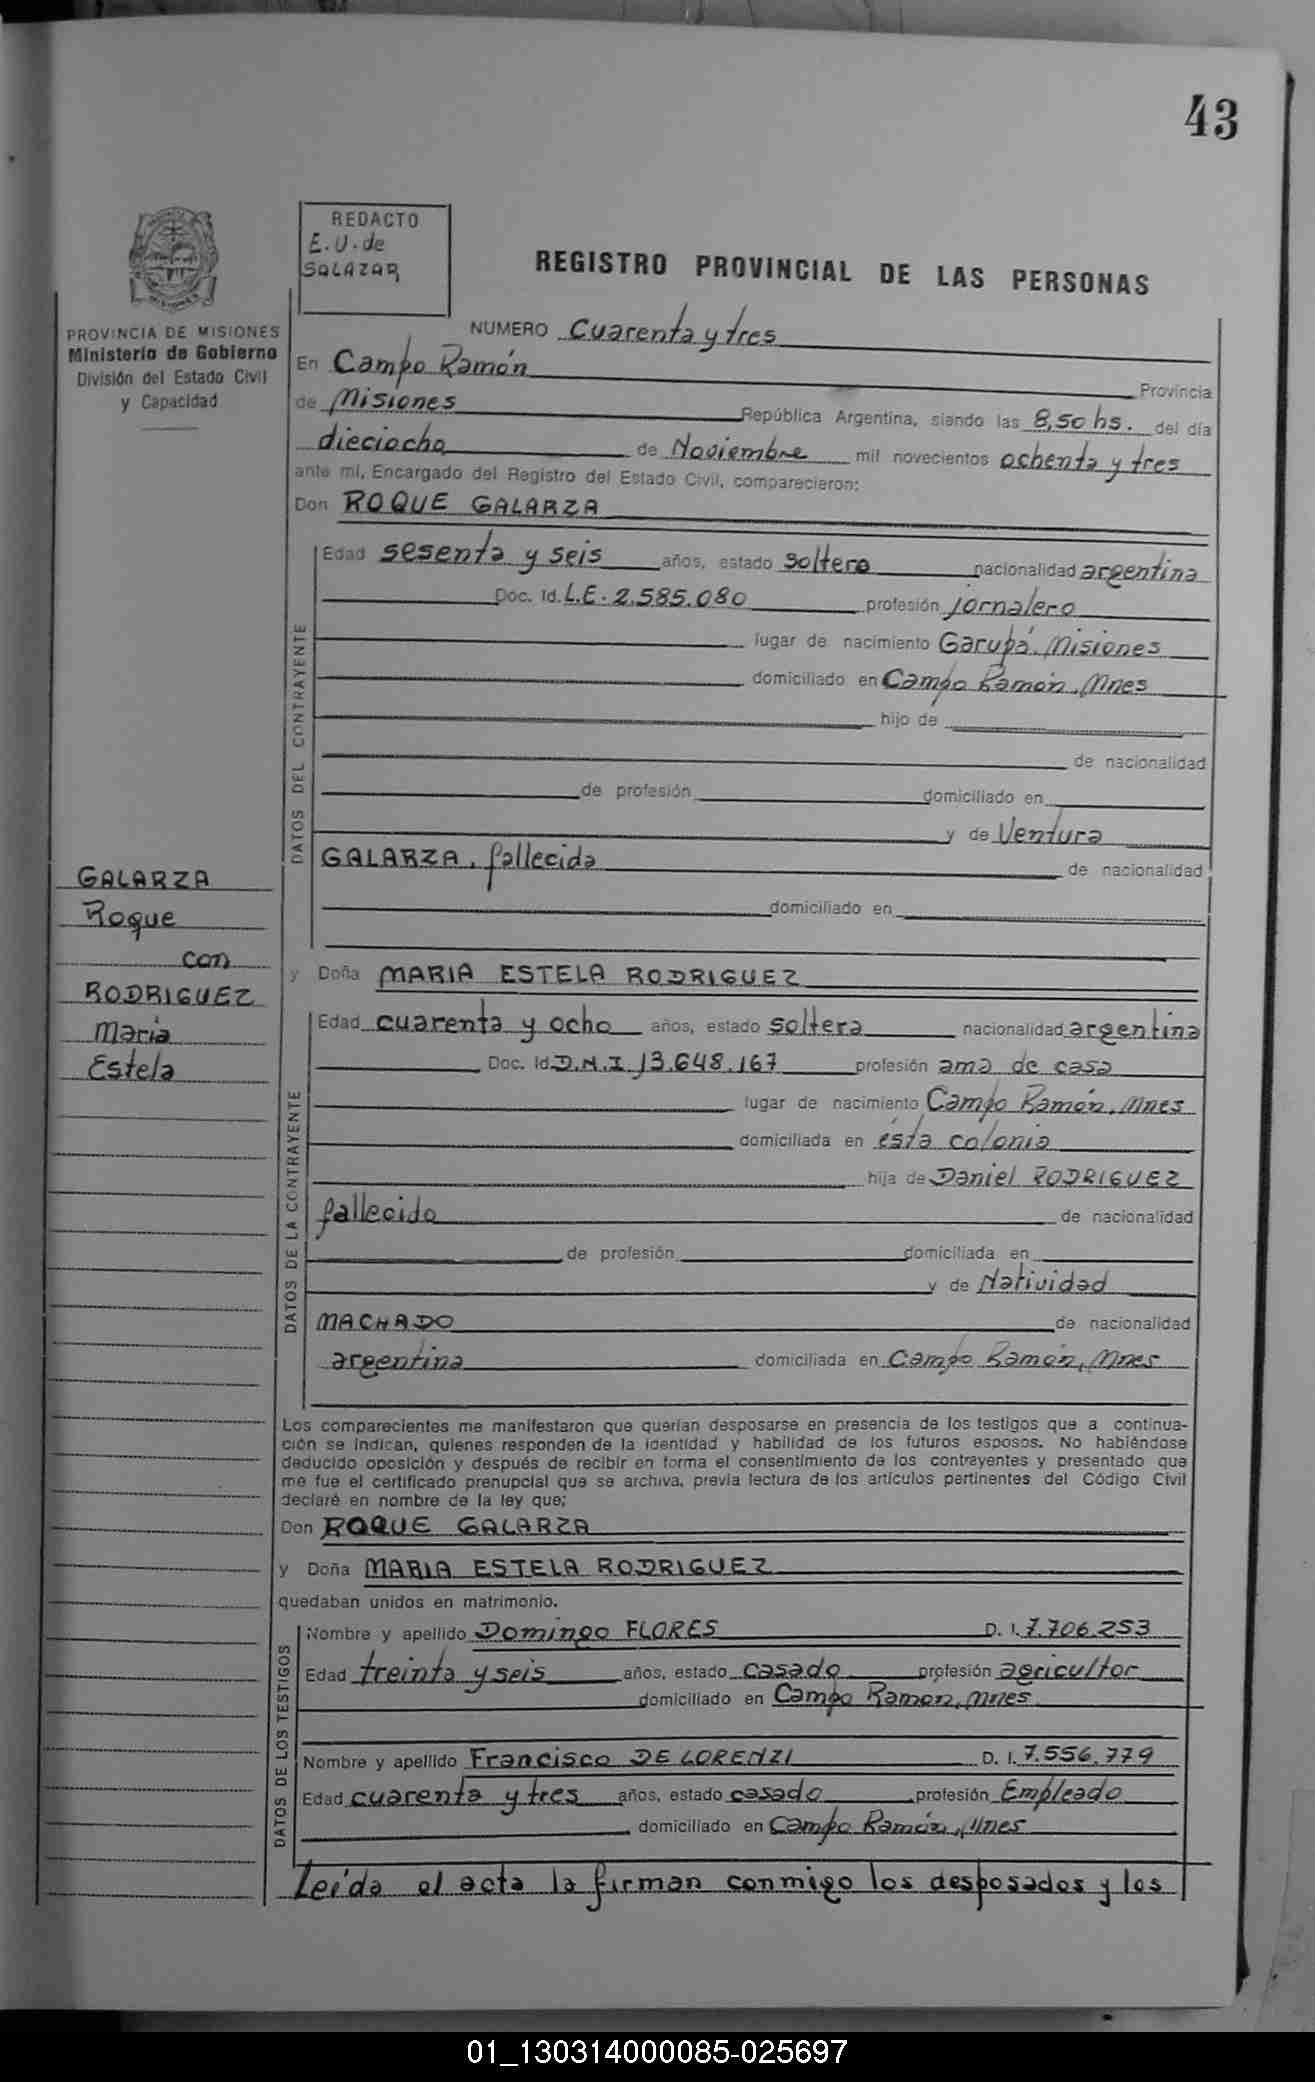 43
REDACTO
E. U. de
SALAZAR
REGISTRO PROVINCIAL DE LAS PERSONAS
PROVINCIA DE MISIONES
Ministerio de Gobierno
División del Estado Civil
y Capacidad
NUMERO Cuarenta y tres
En Campo Ramón Provincia
de Misiones República Argentina, siendo las 8,50 hs. del día
dieciocho de Noviembre mil novecientos ochenta y tres
ante mí, Encargado del Registro del Estado Civil, comparecieron:
Don ROQUE GALARZA
DATOS DEL CONTRAYENTE
Edad sesenta y seis años, estado soltero nacionalidad argentina
Doc. Id. L.E. 2.585.080 profesión jornalero
lugar de nacimiento Garupá, Misiones
domiciliado en Campo Ramón, Mnes
hijo de
de nacionalidad
de profesión domiciliado en
y de Ventura
GALARZA, fallecida de nacionalidad
domiciliado en
GALARZA
Roque
con
RODRIGUEZ
Maria
Estela
y Doña MARIA ESTELA RODRIGUEZ
DATOS DE LA CONTRAYENTE
Edad cuarenta y ocho años, estado soltera nacionalidad argentina
Doc. Id. D.N.I. 13.648.167 profesión ama de casa
lugar de nacimiento Campo Ramón, Mnes
domiciliada en ésta colonia
hija de Daniel RODRIGUEZ
fallecido de nacionalidad
de profesión domiciliada en
y de Natividad
MACHADO de nacionalidad
argentina domiciliada en Campo Ramón, Mnes
Los comparecientes me manifestaron que querían desposarse en presencia de los testigos que a continua-
ción se indican, quienes responden de la identidad y habilidad de los futuros esposos. No habiéndose
deducido oposición y después de recibir en forma el consentimiento de los contrayentes y presentado que
me fue el certificado prenupcial que se archiva, previa lectura de los artículos pertinentes del Código Civil
declaré en nombre de la ley que;
Don ROQUE GALARZA
y Doña MARIA ESTELA RODRIGUEZ
quedaban unidos en matrimonio.
DATOS DE LOS TESTIGOS
Nombre y apellido Domingo FLORES D. I. 7.706.253
Edad treinta y seis años, estado casado profesión agricultor
domiciliado en Campo Ramon, Mnes
Nombre y apellido Francisco DE LORENZI D. I. 7.556.779
Edad cuarenta y tres años, estado casado profesión Empleado
domiciliado en Campo Ramón, Mnes
Leída el acta la firman conmigo los desposados y los
01_130314000085-025697